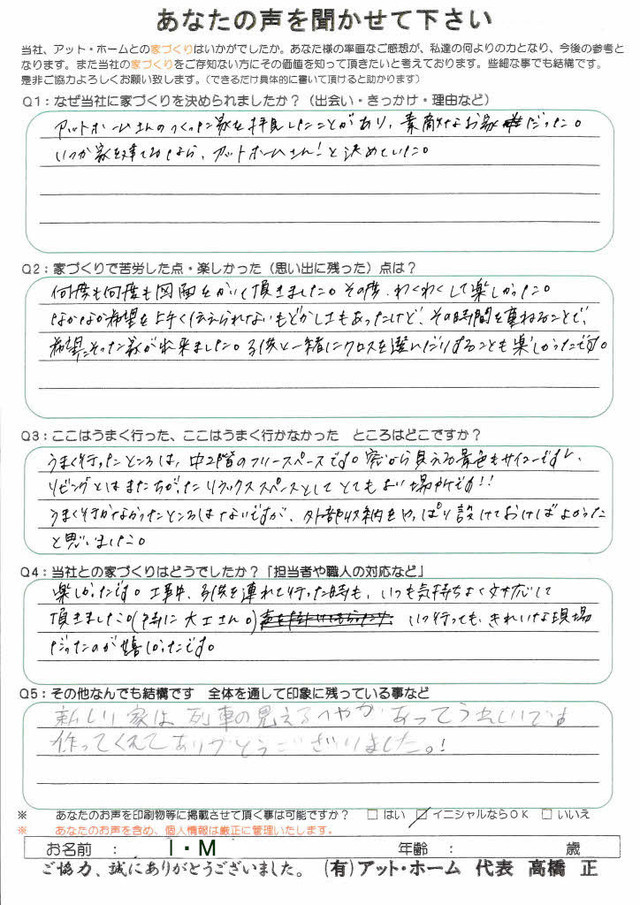 あなたの声を聞かせて下さい
当社、アット・ホームとの家づくりはいかがでしたか。あなた様の率直なご感想が、私達の何よりの力となり、今後の参考と
なります。また当社の家づくりをご存知ない方にその価値を知って頂きたいと考えております。些細な事でも結構です。
是非ご協力よろしくお願い致します。（できるだけ具体的に書いて頂けると助かります）
Q1：なぜ当社に家づくりを決められましたか？（出会い・きっかけ・理由など）
アットホームさんのつくった家を拝見したことがあり、素敵なお家だった。
いつか家を建てるなら、アットホームさん！と決めていた。
Q2：家づくりで苦労した点・楽しかった（思い出に残った）点は？
何度も何度も図面をかいて頂きました。その度、わくわくして楽しかった。
なかなか希望を上手く伝えられないもどかしさもあったけど、その時間を重ねることで、
希望にそった家が出来ました。子供と一緒にクロスを選んだりすることも楽しかったです。
Q3：ここはうまく行った、ここはうまく行かなかった　ところはどこですか？
うまく行ったところは、中2階のフリースペースです。窓から見える景色もサイコーですし、
リビングとはまたちがったリラックススペースとしてとてもよい場所です!!
うまく行かなかったところはないですが、外部収納をやっぱり設けておけばよかった
と思いました。
Q4：当社との家づくりはどうでしたか？「担当者や職人の対応など」
楽しかったです。工事中、子供を連れて行った時も、いつも気持ちよく対応して
頂きました。(特に大工さん。) いつ行っても、きれいな現場
だったのが嬉しかったです。
Q5：その他なんでも結構です　全体を通して印象に残っている事など
新しい家は列車の見えるへやがあってうれしいです
作ってくれてありがとうございました。！
※　あなたのお声を印刷物等に掲載させて頂く事は可能ですか？　□ はい　☑ イニシャルならＯＫ　□ いいえ
※　あなたのお声を含め、個人情報は厳正に管理いたします。
お名前　：　I・M　年齢　：　歳
ご協力、誠にありがとうございました。（有）アット・ホーム　代表　高橋　正